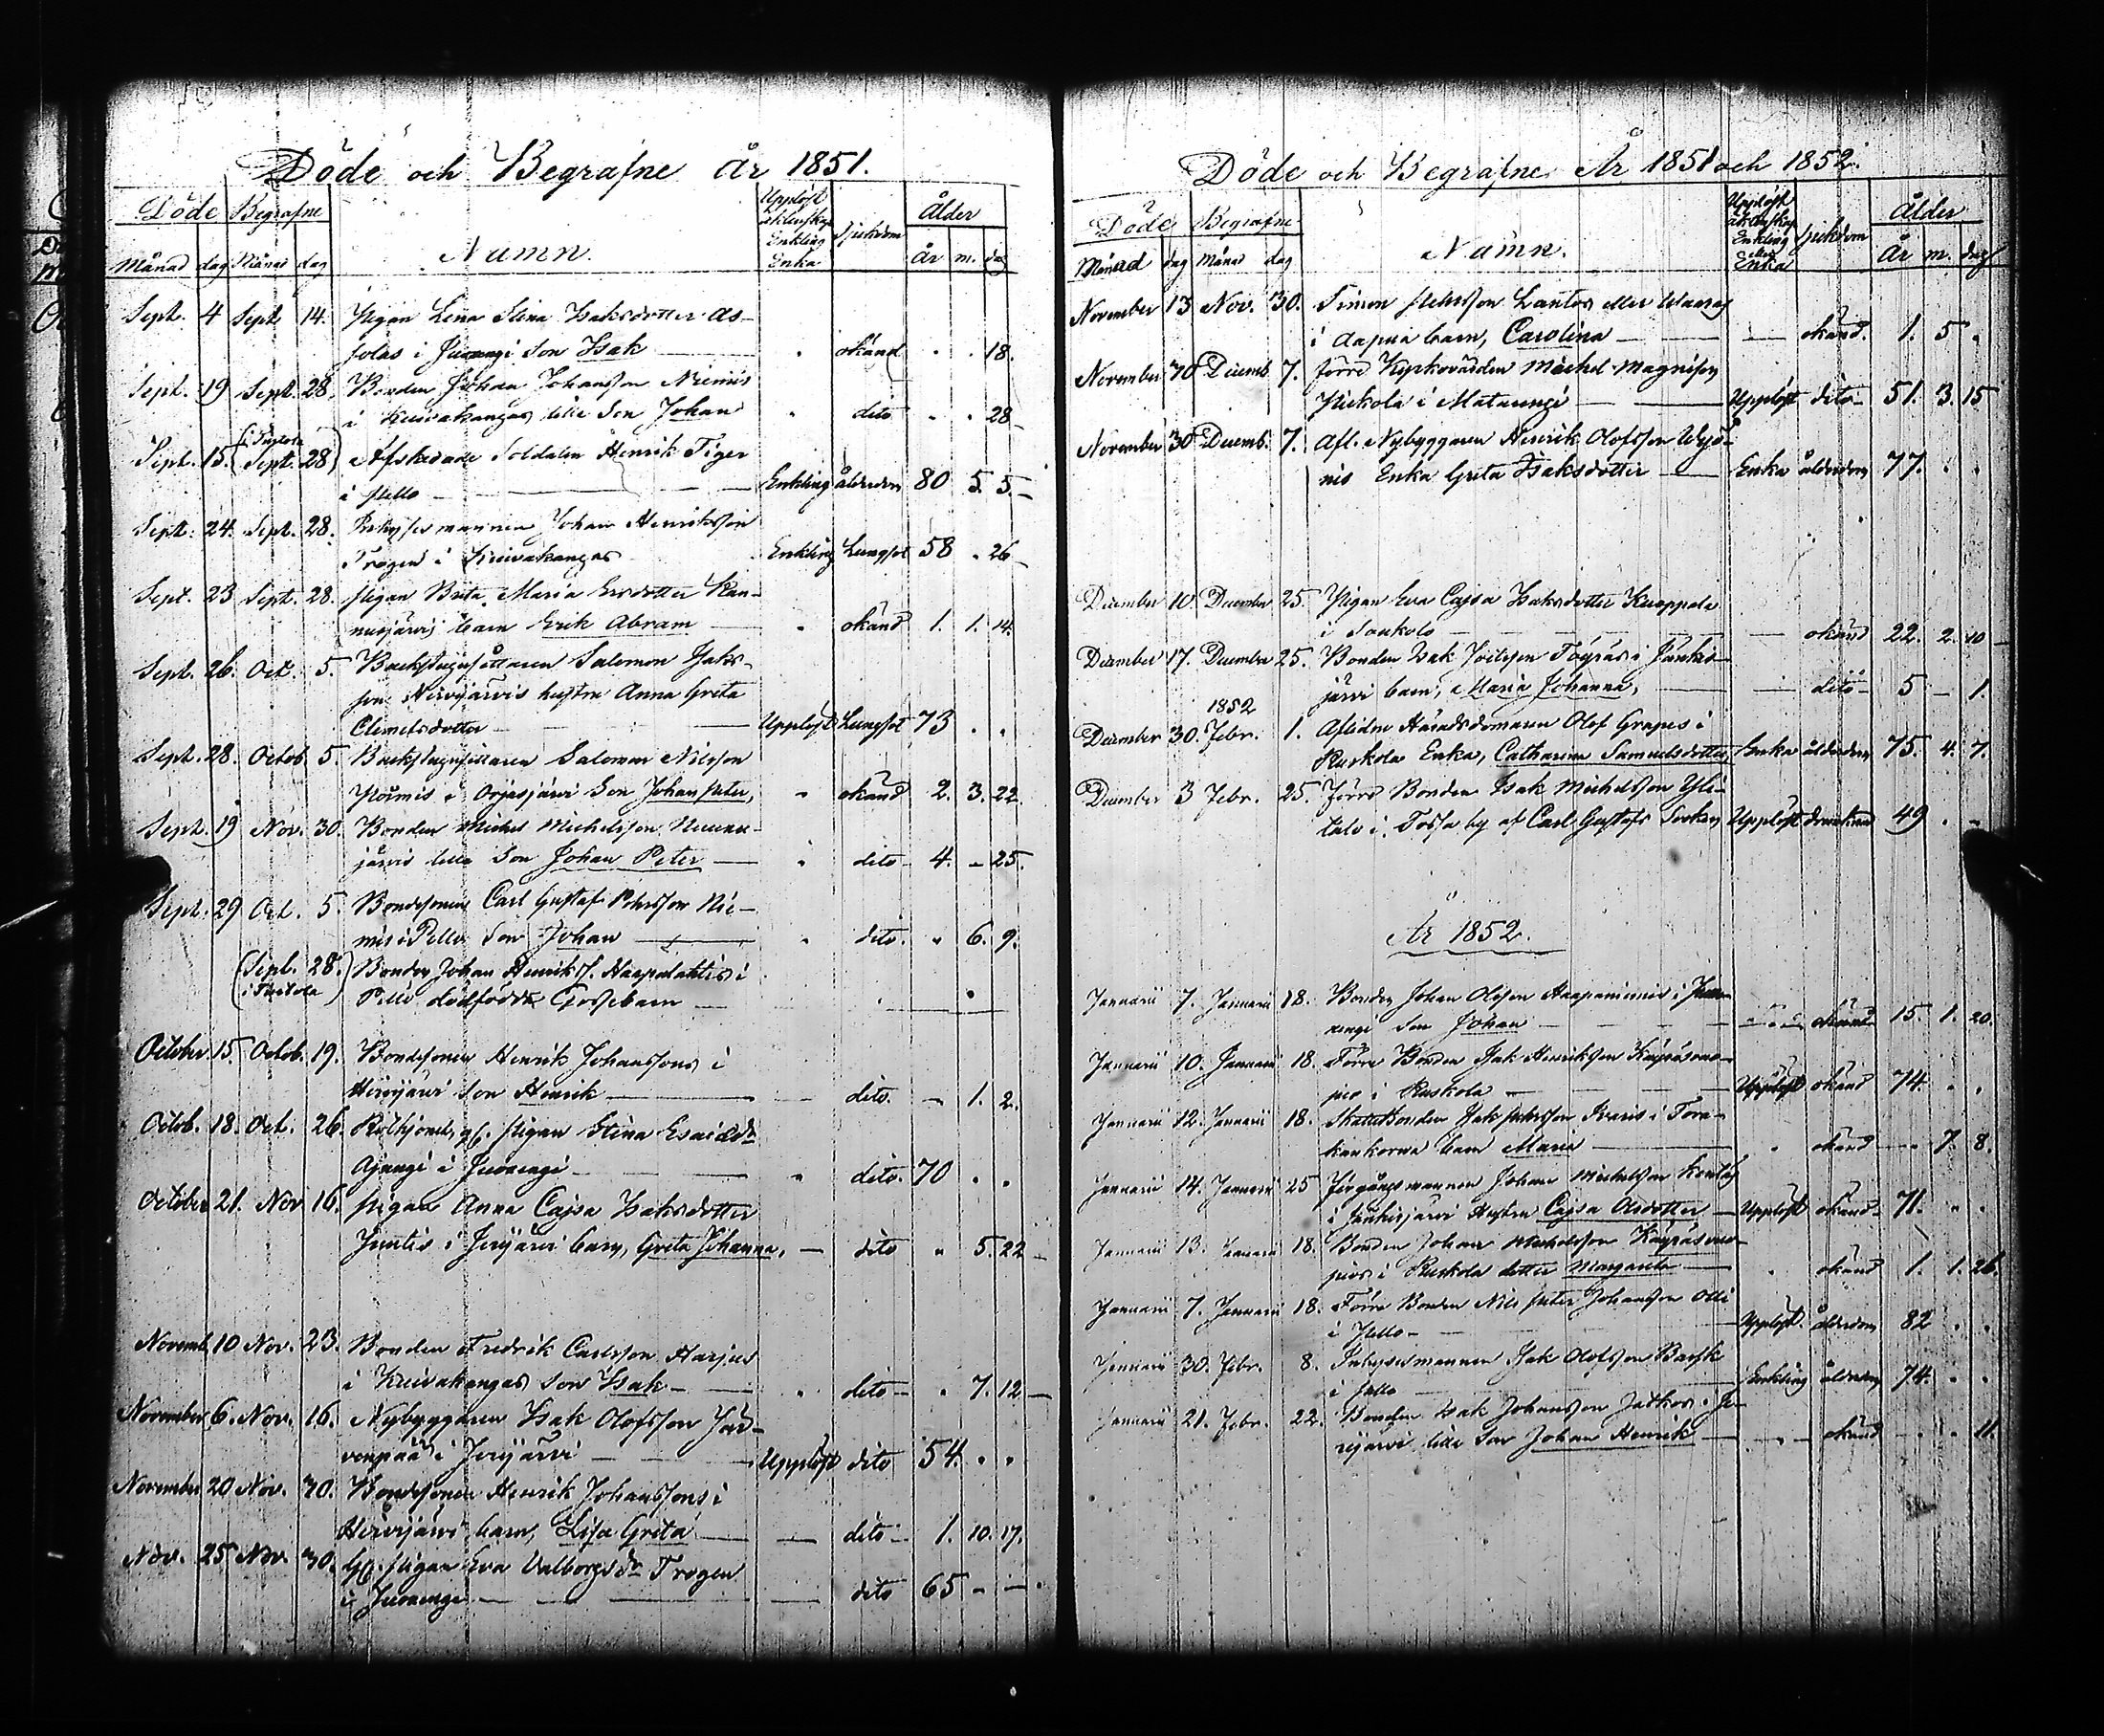 Döde och Begrafne år 1851.
Döde Begrafne Namn. Upplöst äktenskap Enkling Enka sjukdom Ålder
Månad dag Månad dag år m. dag
Sept. 4 Sept. 14. Pigan Lena Stina Isaksdotter As-
jolas i Juoxengi Son Isak okänd . . 18.
Sept. 19 Sept. 28. Bonden Johan Johansson Niemis
i Kuivakangas lille Son Johan dito . . 28
Sept. 15. (i Turtola Sept. 28) Afskedade Soldaten Henrik Tiger
i Pello Enkling ålderdom 80 5. 5.
Sept. 24. Sept. 28. Inhysesmannen Johan Henriksson
Trogen i Kuivakangas Enkling Lungsot 58 . 26
Sept. 23 Sept. 28. Pigan Brita Maria Ersdotter Kan-
nusjärvis barn Erik Abram okänd 1. 1. 14.
Sept. 26. Oct. 5. Backstugusittaren Salomon Isaks-
son Hirvijärvis hustru Anna Greta
Clemetsdotter Upplöst Lungsot 73 . .
Sept. 28. Octob. 5. Backstugusittaren Salomon Nilsson
i Orjasjärvi Son Johan Peter, okänd 2. 3. 22.
Sept. 19 Nov. 30. Bonden Michel Michelsson
järvis lille Son Johan Peter dito 4. - 25.
Sept. 29 Oct. 5. Bondesonen Carl Gustaf Pehrsson Nie-
mis i Pello Son Johan dito. . 6. 9.
(Sept. 28. i Turtola) Bonden Johan Henrikss. Haapalahtis i
Pello dödfödda Gossebarn
October 15. Octob. 19. Bondesonen Henrik Johanssons i
Hirvijärvi Son Henrik dito. - 1. 2.
Octob. 18. Oct. 26. Rothjonet, gl. Pigan Stina Esaiædr
Ajangi i Juoxengi dito. 70 . .
October 21. Nov. 16. Pigan Anna Cajsa Isaksdotter
Juntis i Jerijärvi barn, Greta Johanna, dito . 5. 22
Novemb. 10 Nov. 23. Bonden Fredrik Carlsson Harjus
i Kuivakangas Son Isak dito . 7. 12
November 6. Nov. 16. Nybyggaren Isak Olofsson Jär-
venpää i Jerijärvi Upplöst dito 54. . .
November 20 Nov. 30. Bondesonen Henrik Johanssons i
Hirvijärvi barn, Lisa Greta dito 1. 10. 17.
Nov. 25 Nov. 30. Gl. Pigan Eva Valborgsdr Trogen
i Juoxengi dito 65 - -
Döde och Begrafne År 1851 och 1852.
Döde Begrafne Namn. Upplöst äktenskap Enkling eller Enka sjukdom Ålder
Månad dag Månad dag År m. dag
November 13 Nov. 30. Simon Pehrsson Lantos eller Waarag
i Aapua barn, Carolina okänd. 1. 5 .
November 30 Decemb. 7. förre Kyrkovärden Michel Magnison
Niskola i Matarengi Upplöst dito 51. 3. 15
November 30 Decemb. 7. Afl. Nybyggaren Henrik Olofsson Wyö-
nis Enka Greta Isaksdotter Enka ålderdom 77. . .
December 10. December 25. Pigan Eva Cajsa Isaksdotter Kuoppala
i Soukolo okänd 22. 2. 10
December 17. December 25. Bonden Isak Töyräs i Jänkis-
järvi barn, Maria Johanna, dito 5 - 1.
1852
December 30. Febr. 1. Aflidne Häradsdomaren Olof Grapes i
Ruskola Enka, Catharina Samuelsdotter, Enka ålderdom 75. 4. 7.
December 3 Febr. 25. Förre Bonden Isak Michelsson Yli-
talo i Torsa by af Carl Gustafs Socken Upplöst drunknad 49 . -
År 1852.
Januarii 7. Januarii 18. Bonden Johan Olsson Haapaniemis i Juox-
engi Son Johan okänd 15. 1. 20.
Januarii 10. Januarii 18. Förre Bonden Isak Henriksson Käyräsvuo-
pio i Ruskola Upplöst okänd 74. . .
Januarii 12. Januarii 18. Skattebonden Isak Pehrsson Ivaris i Tora-
kankorva barn Maria okänd - 7. 8.
Januarii 14. Januarii 25 Förgångsmannen Johan Michelsson
i Jänkisjärvi Hustru Cajsa Olsdotter Upplöst okänd 71. . .
Januarii 13. Januarii 18. Bonden Johan Michelsson Käyräsvuo-
pios i Ruskola dotter Margareta okänd 1. 1. 26.
Januarii 7. Januarii 18. Förre Bonden Nils Peter Johansson Olli
i Pello Upplöst. ålderdom 82 . .
Januarii 30. Febr. 8. Inhysesmannen Isak Olofsson Barsk
i Pello Enkling ålderdom 74. . .
Januarii 21. Febr. 22. Bonden Isak Johansson Jatkos i Je-
rijärvi lille Son Johan Henrik okänd . . 11.